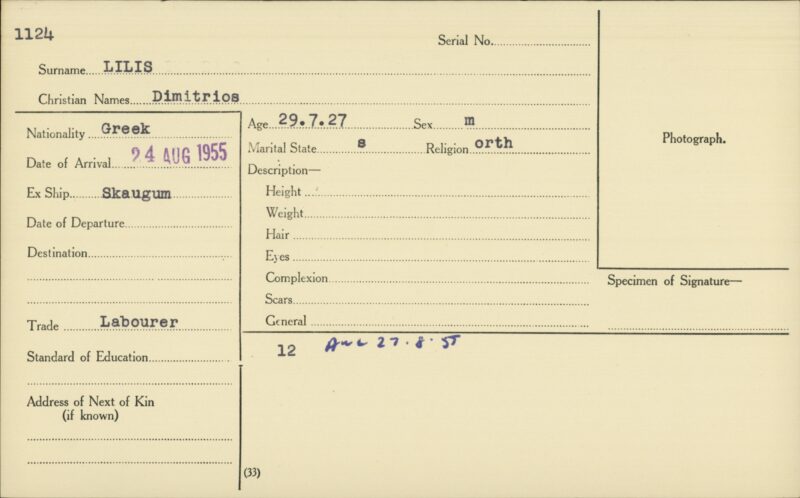 1124
Serial No.
Surname LILIS
Christian Names Dimitrios
Nationality Greek
Date of Arrival 24 AUG 1955
Ex Ship Skaugum
Date of Departure
Destination
Trade Labourer
Standard of Education
Address of Next of Kin
(if known)
Age 29.7.27 Sex m
Marital State s Religion orth
Description—
Height
Weight
Hair
Eyes
Complexion
Scars
General
12 27.8.55
(33)
Photograph.
Specimen of Signature—